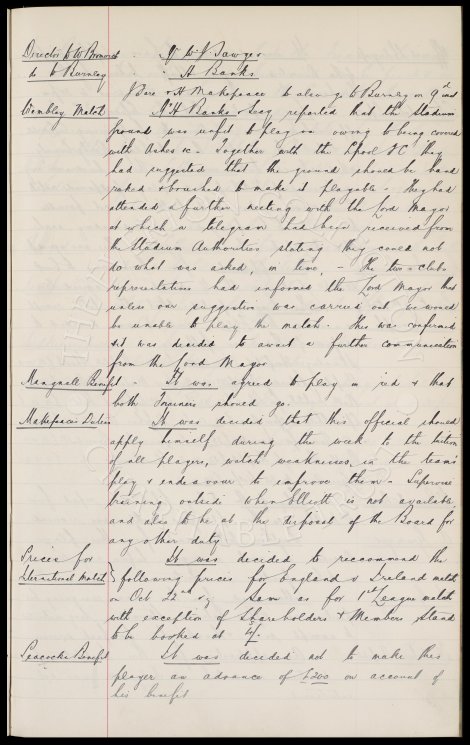 Director to W Bromwich - Mr W. J. Sawyer
do to Burnley - A Banks
Bare & H Makepeace to also go to Burnley on 9th inst
Wembley Match Mr H. Banks & Secy reported that the Stadium
ground was unfit to play on owing to being covered
with Ashes &c. Together with the Lpool F C they
had suggested that the ground should be hand
raked & brushed to make it playable - They had
attended a further meeting with the Lord Mayor
at which a telegram had been received from
the Stadium Authorities stating they could not
do what was asked, in time, - The two clubs
representatives had informed the Lord Mayor that
unless our suggestion was carried out we would
be unable to play the match. This was confirmed
& it was decided to await a further communication
from the Lord Mayor
Mangnall Benefit - It was agreed to play in red & that
both Trainers should go.
Makepeaces Duties It was decided that this official should
apply himself during the week to the tuition
of all players, watch weaknesses in the team's
play & endeavour to improve them - Supervise
training outside when Elliott is not available
and also to be at the disposal of the Board for
any other duty
Prices for It was decided to reccommend the
International Match } following prices for England v Ireland match
on Oct 22nd viz Same as for 1st League match
with exception of Shareholders & Members Stand
to be booked at 4/-
Peacocks Benefit It was decided not to make this
player an advance of £200 on account of
his benefit